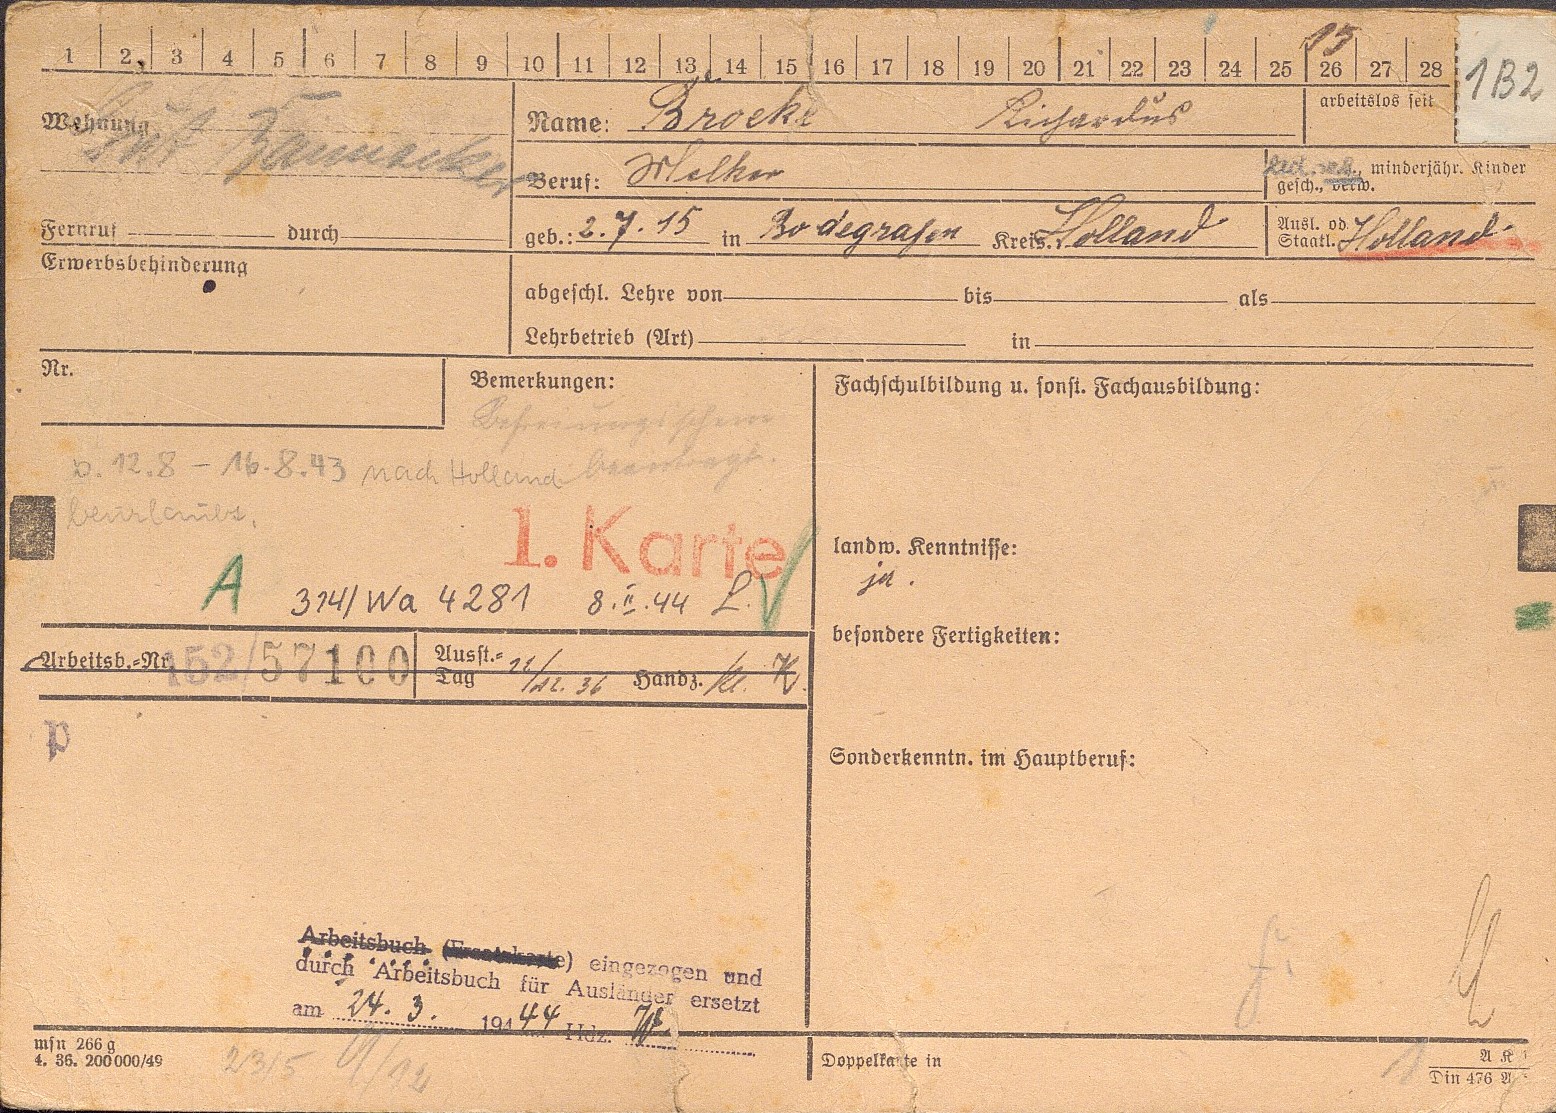 1 2 3 4 5 6 7 8 9 10 11 12 13 14 15 16 17 18 19 20 21 22 23 24 25 26 27 28
1B2
Wohnung
Gut
Name: Broeke Richardus
arbeitslos seit
Beruf: Melker
led. verh., minderjähr. Kinder
gesch., verw.
Fernruf durch
geb.: 2.7.15 in Bodegrafen Kreis Holland
Ausl. od.
Staatl. Holland
Erwerbsbehinderung
abgeschl. Lehre von bis als
Lehrbetrieb (Art) in
Nr.
Bemerkungen:
Befreiungsschein
beantragt.
v. 12.8 - 16.8.43 nach Holland
beurlaubt.
1. Karte
A 314/Wa 4281 8.II.44 L.
Arbeitsb.-Nr. 152/57100
Ausst.-
Tag 12. 36 Handz. K.
P
Fachschulbildung u. sonst. Fachausbildung:
landw. Kenntnisse:
ja.
besondere Fertigkeiten:
Sonderkenntn. im Hauptberuf:
Arbeitsbuch (Ersatzkarte) eingezogen und
durch Arbeitsbuch für Ausländer ersetzt
am 24. 3. 1944 Hdz.
msn 266 g
4. 36. 200 000/49
23/5
Doppelkarte in
1
A K 1
Din 476 A